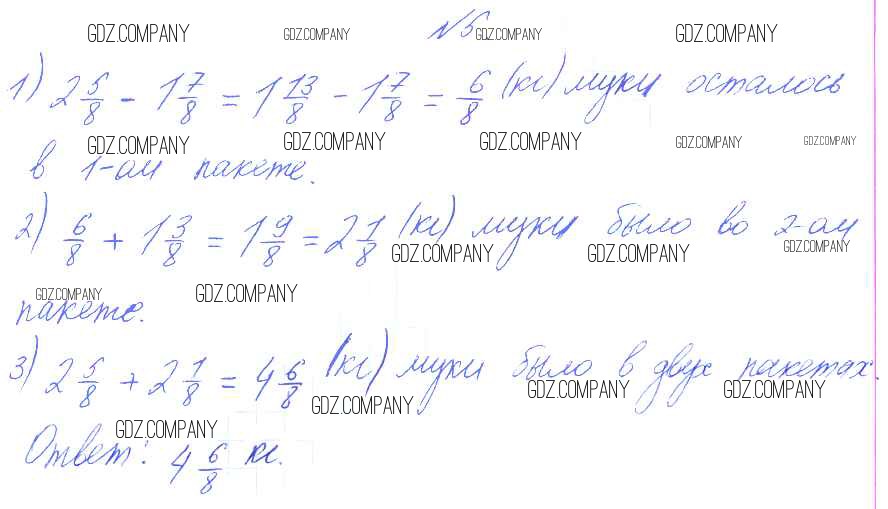 GDZ.COMPANY GDZ.COMPANY №5 GDZ.COMPANY GDZ.COMPANY
1) 2 5/8 - 1 7/8 = 1 13/8 - 1 7/8 = 6/8 (кг) муки осталось
GDZ.COMPANY GDZ.COMPANY GDZ.COMPANY GDZ.COMPANY GDZ.COMPANY
в 1-ом пакете.
2) 6/8 + 1 3/8 = 1 9/8 = 2 1/8 (кг) муки было во 2-ом
GDZ.COMPANY GDZ.COMPANY GDZ.COMPANY
GDZ.COMPANY GDZ.COMPANY
пакете.
3) 2 5/8 + 2 1/8 = 4 6/8 (кг) муки было в двух пакетах.
GDZ.COMPANY GDZ.COMPANY GDZ.COMPANY
GDZ.COMPANY
Ответ: 4 6/8 кг.